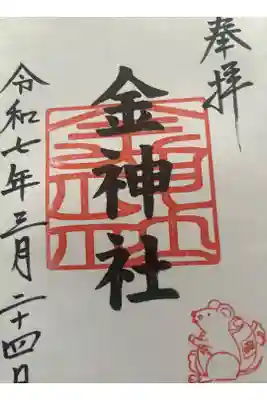 奉拝
金神社
令和七年三月二十四日